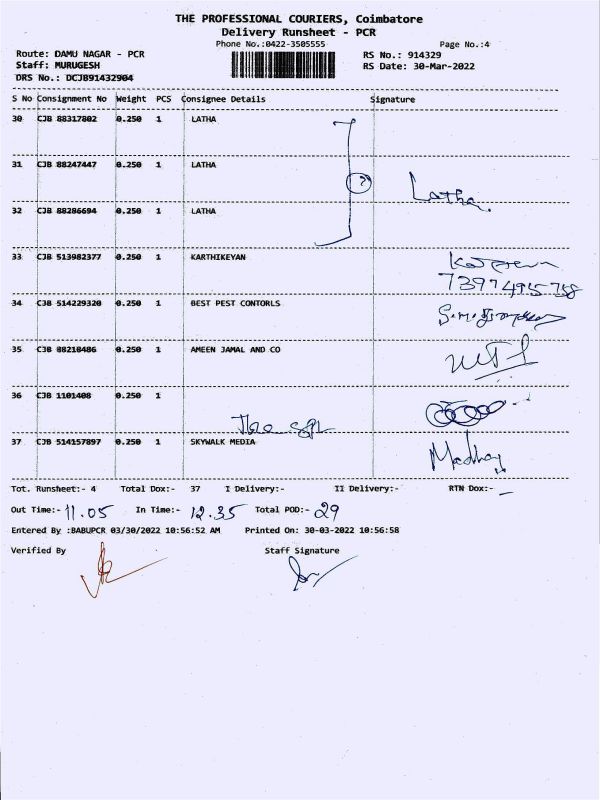 THE PROFESSIONAL COURIERS, Coimbatore
Delivery Runsheet - PCR
Phone No.:0422-3505555 Page No.:4
Route: DAMU NAGAR - PCR RS No.: 914329
Staff: MURUGESH RS Date: 30-Mar-2022
DRS No.: DCJB91432904
S No Consignment No Weight PCS Consignee Details Signature
30 CJB 88317802 0.250 1 LATHA
31 CJB 88247447 0.250 1 LATHA
Latha.
32 CJB 88286694 0.250 1 LATHA
33 CJB 513982377 0.250 1 KARTHIKEYAN
34 CJB 514229320 0.250 1 BEST PEST CONTORLS
35 CJB 88218486 0.250 1 AMEEN JAMAL AND CO
36 CJB 1101408 0.250 1
37 CJB 514157897 0.250 1 SKYWALK MEDIA
Tot. Runsheet:- 4 Total Dox:- 37 I Delivery:- II Delivery:- RTN Dox:-
Out Time:- 11.05 In Time:- 12.35 Total POD:- 29
Entered By :BABUPCR 03/30/2022 10:56:52 AM Printed On: 30-03-2022 10:56:58
Verified By Staff Signature